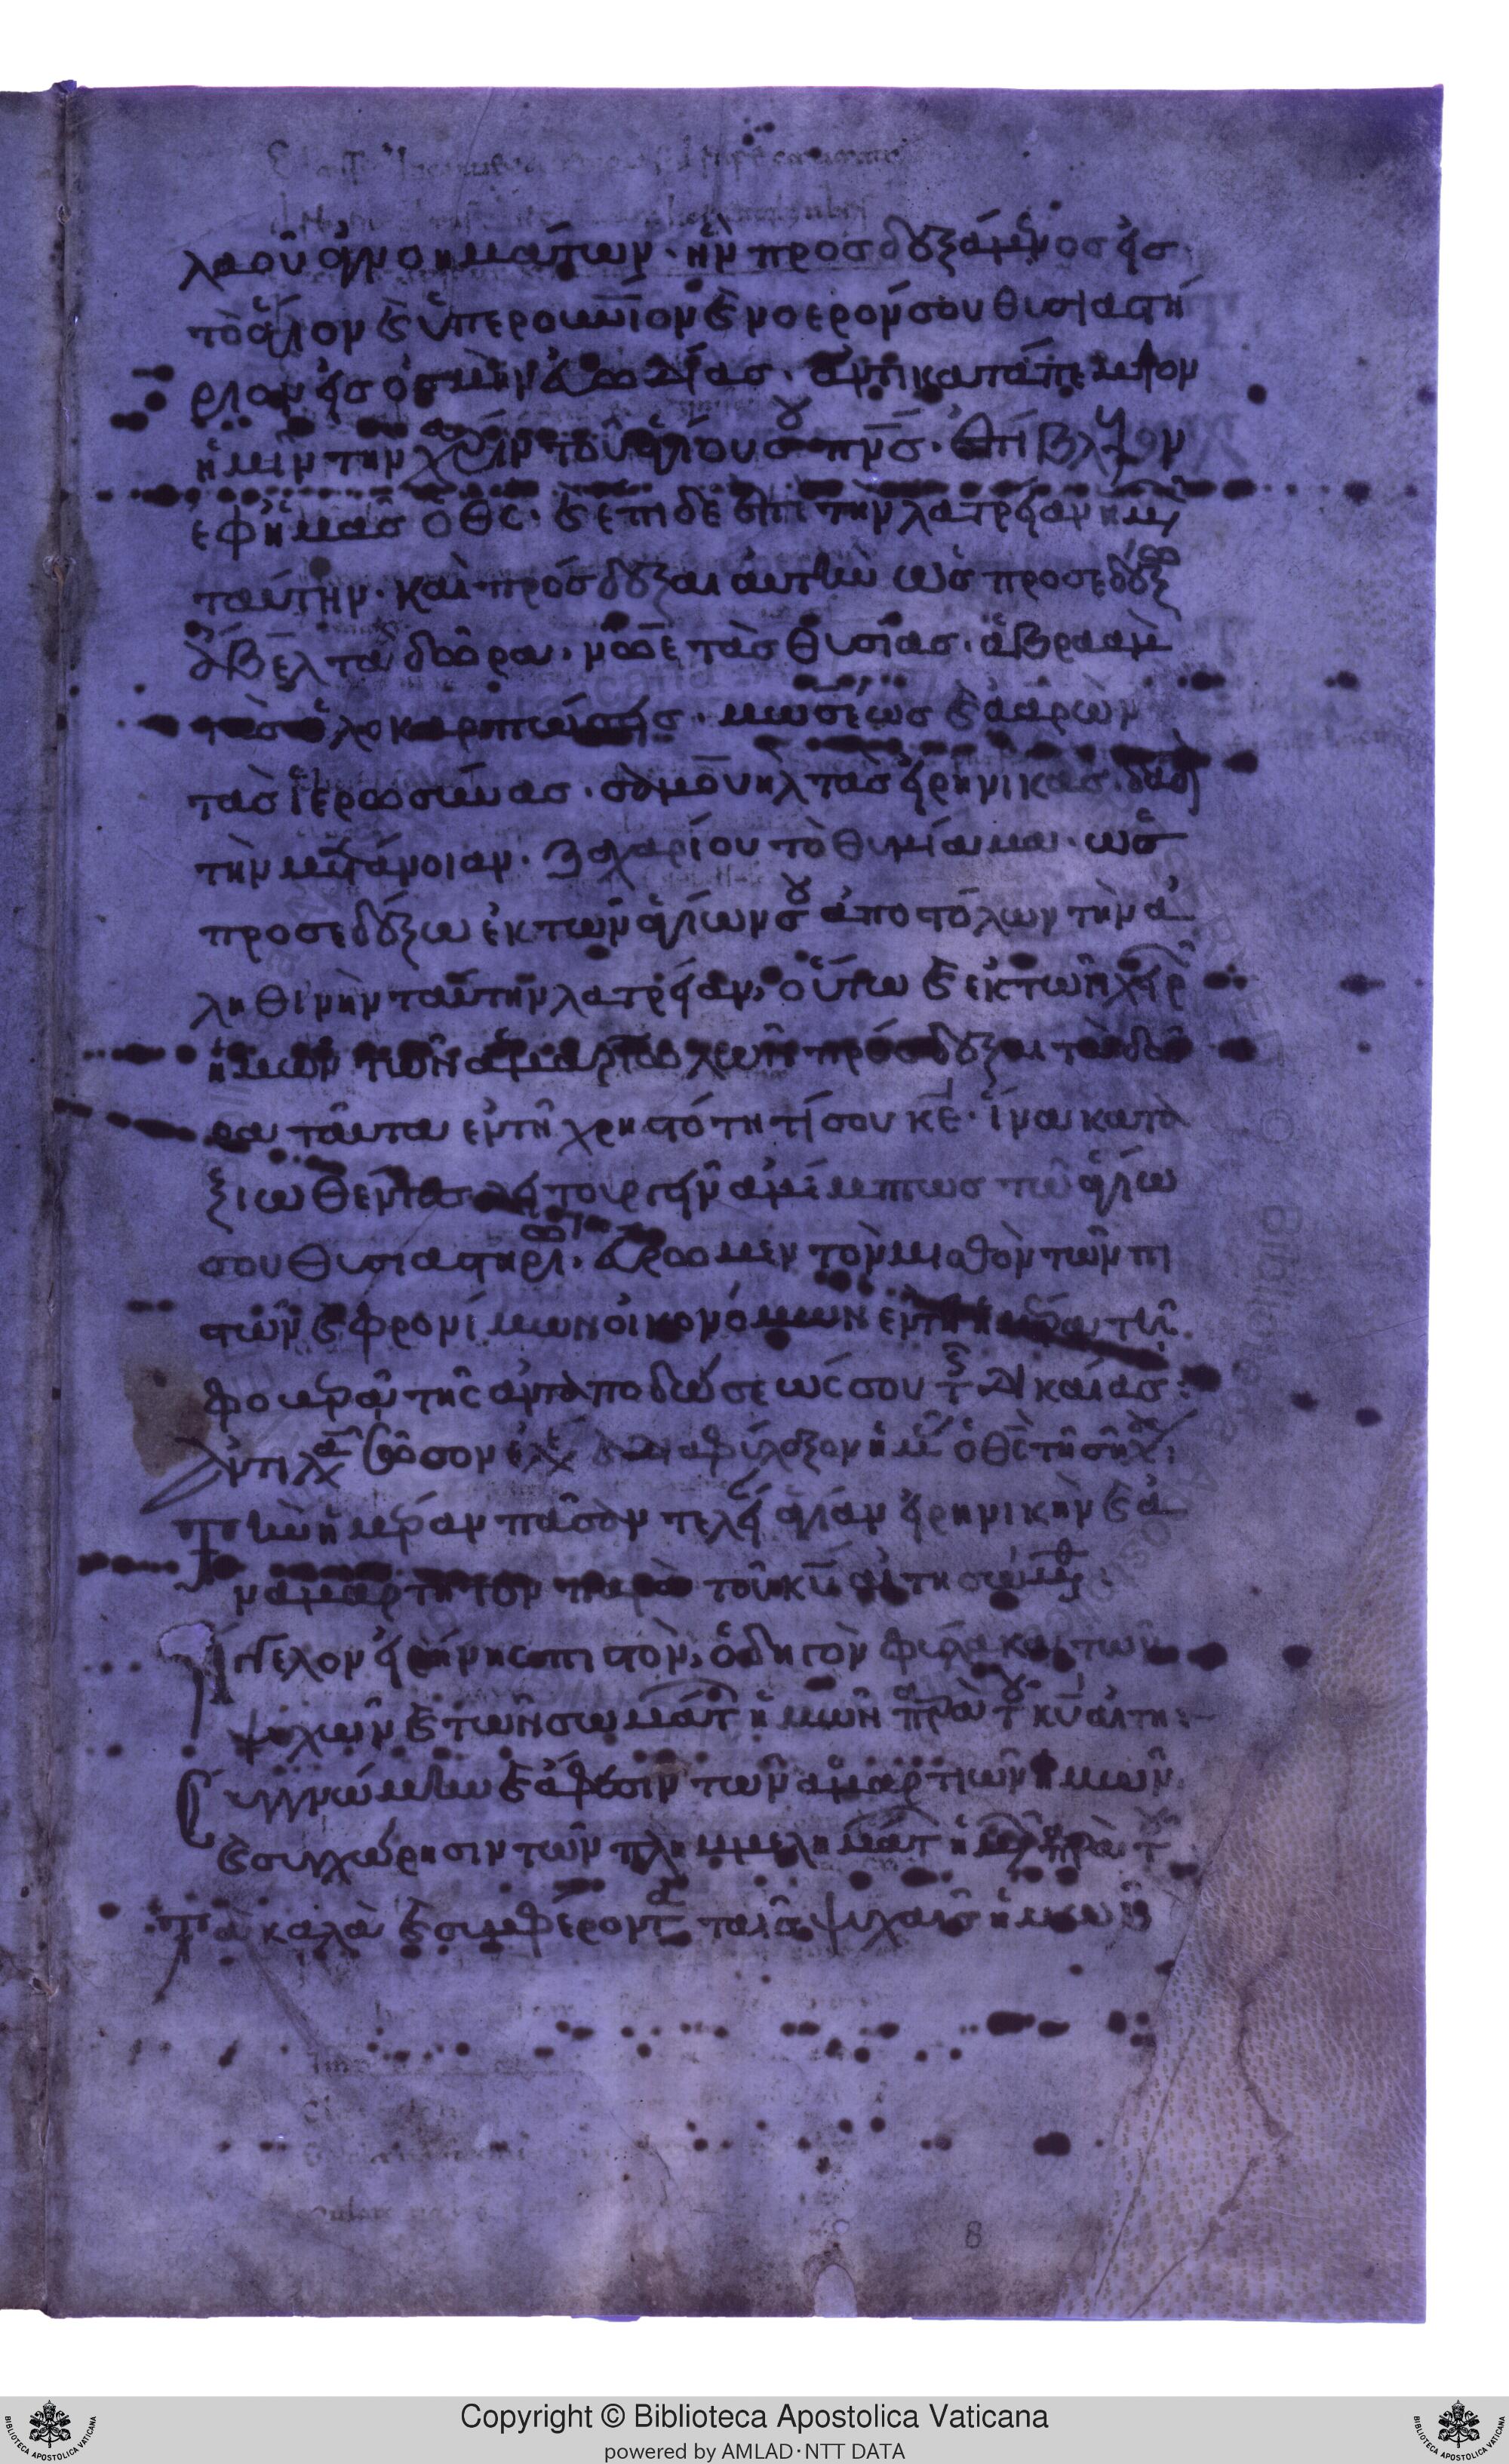 λαοῦ ἀγνοημάτων· ἣν προσδεξάμενος εἰς
τὸ ἅγιον καὶ ὑπερουράνιον καὶ νοερόν σου θυσιαστή
ριον εἰς ὀσμὴν εὐωδίας· ἀντικατάπεμψον
ἡμῖν τὴν χάριν τοῦ ἁγίου σου πνς· ἐπίβλεψον
ἐφ ἡμᾶς ὁ θς· καὶ ἔπιδε ἐπὶ τὴν λατρείαν ἡμῶν
ταύτην· καὶ πρόσδεξαι αὐτὴν ὡς προσεδέξω
ἄβελ τὰ δῶρα· νῶε τὰς θυσίας· ἀβραὰμ
τὰς ὁλοκαρπώσεις· μωσέως καὶ ἀαρὼν
τὰς ἱερωσύνας· σαμουὴλ τὰς εἰρηνικάς· δαδ
τὴν μετάνοιαν· ζαχαρίου τὸ θυμίαμα· ὡς
προσεδέξω ἐκ τῶν ἁγίων σου ἀποστόλων τὴν ἀ
ληθινὴν ταύτην λατρείαν, οὕτω καὶ ἐκ τῶν χειρ
ἡμῶν τῶν ἁμαρτωλῶν πρόσδεξαι τὰ δῶ
ρα ταῦτα ἐν τῇ χρηστότητί σου κε· ἵνα κατα
ξιωθέντες λειτουργεῖν ἀμέμπτως τῷ ἁγίω
σου θυσιαστηρίω· εὕρωμεν τὸν μισθὸν τῶν πι
στῶν καὶ φρονίμων οἰκονόμων ἐν τῇ ἡμέρα τῇ
φοβερᾷ τῆς ἀνταποδώσεώς σου τῆς δικαίας·
Ἀντιλαβοῦ σῶσον ἐλέησον διαφύλαξον ἡμᾶς ὁ θς τῇ σῇ χ·
Τὴν ἡμέραν πᾶσαν τελεί ἁγίαν εἰρηνικὴν καὶ ἀ
ναμάρτητον παρὰ τοῦ κυ αἰτησώμεθ·
Ἄγγελον εἰρήνης πιστὸν, ὁδηγὸν φύλακα τῶν
ψυχῶν καὶ τῶν σωμάτ ἡμῶν παρὰ τοῦ κυ αἰτη·
Συγγνώμην καὶ ἄφεσιν τῶν ἁμαρτιῶν ἡμῶν
καὶ συγχώρησιν τῶν πλημμελημάτ ἡμῶν παρὰ τοῦ
Τὰ καλὰ καὶ συμφέροντα ταῖς ψυχαῖς ἡμῶν
8
Copyright © Biblioteca Apostolica Vaticana
powered by AMLAD·NTT DATA